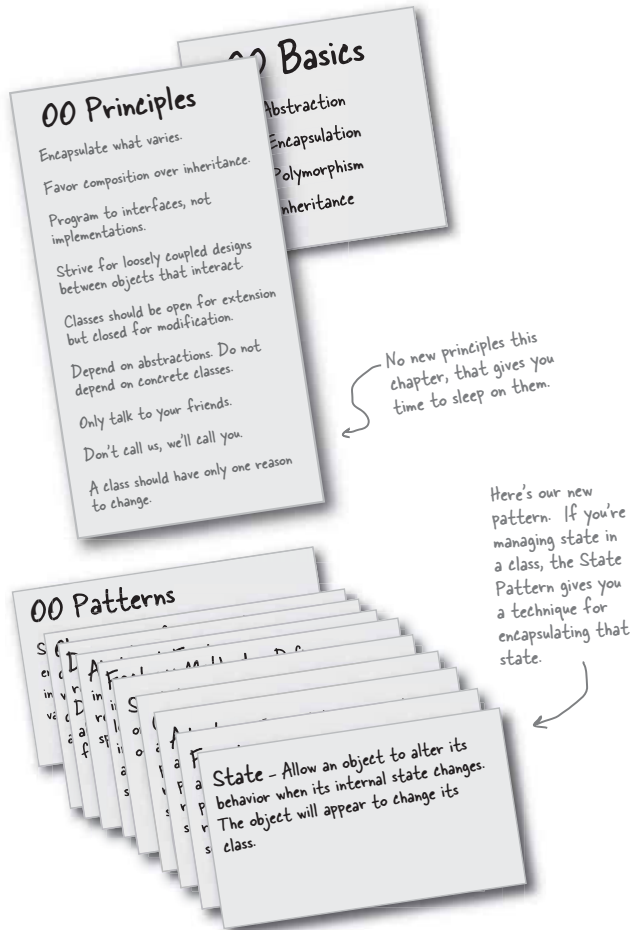 OO Basics
Abstraction
Encapsulation
Polymorphism
nheritance
OO Principles
Encapsulate what varies.
Favor composition over inheritance.
Program to interfaces, not
implementations.
Strive for loosely coupled designs
between objects that interact.
Classes should be open for extension
but closed for modification.
Depend on abstractions. Do not
depend on concrete classes.
Only talk to your friends.
Don't call us, we'll call you.
A class should have only one reason
to change.
No new principles this
chapter, that gives you
time to sleep on them.
Here's our new
pattern. If you're
managing state in
a class, the State
Pattern gives you
a technique for
encapsulating that
state.
OO Patterns
State - Allow an object to alter its
behavior when its internal state changes.
The object will appear to change its
class.